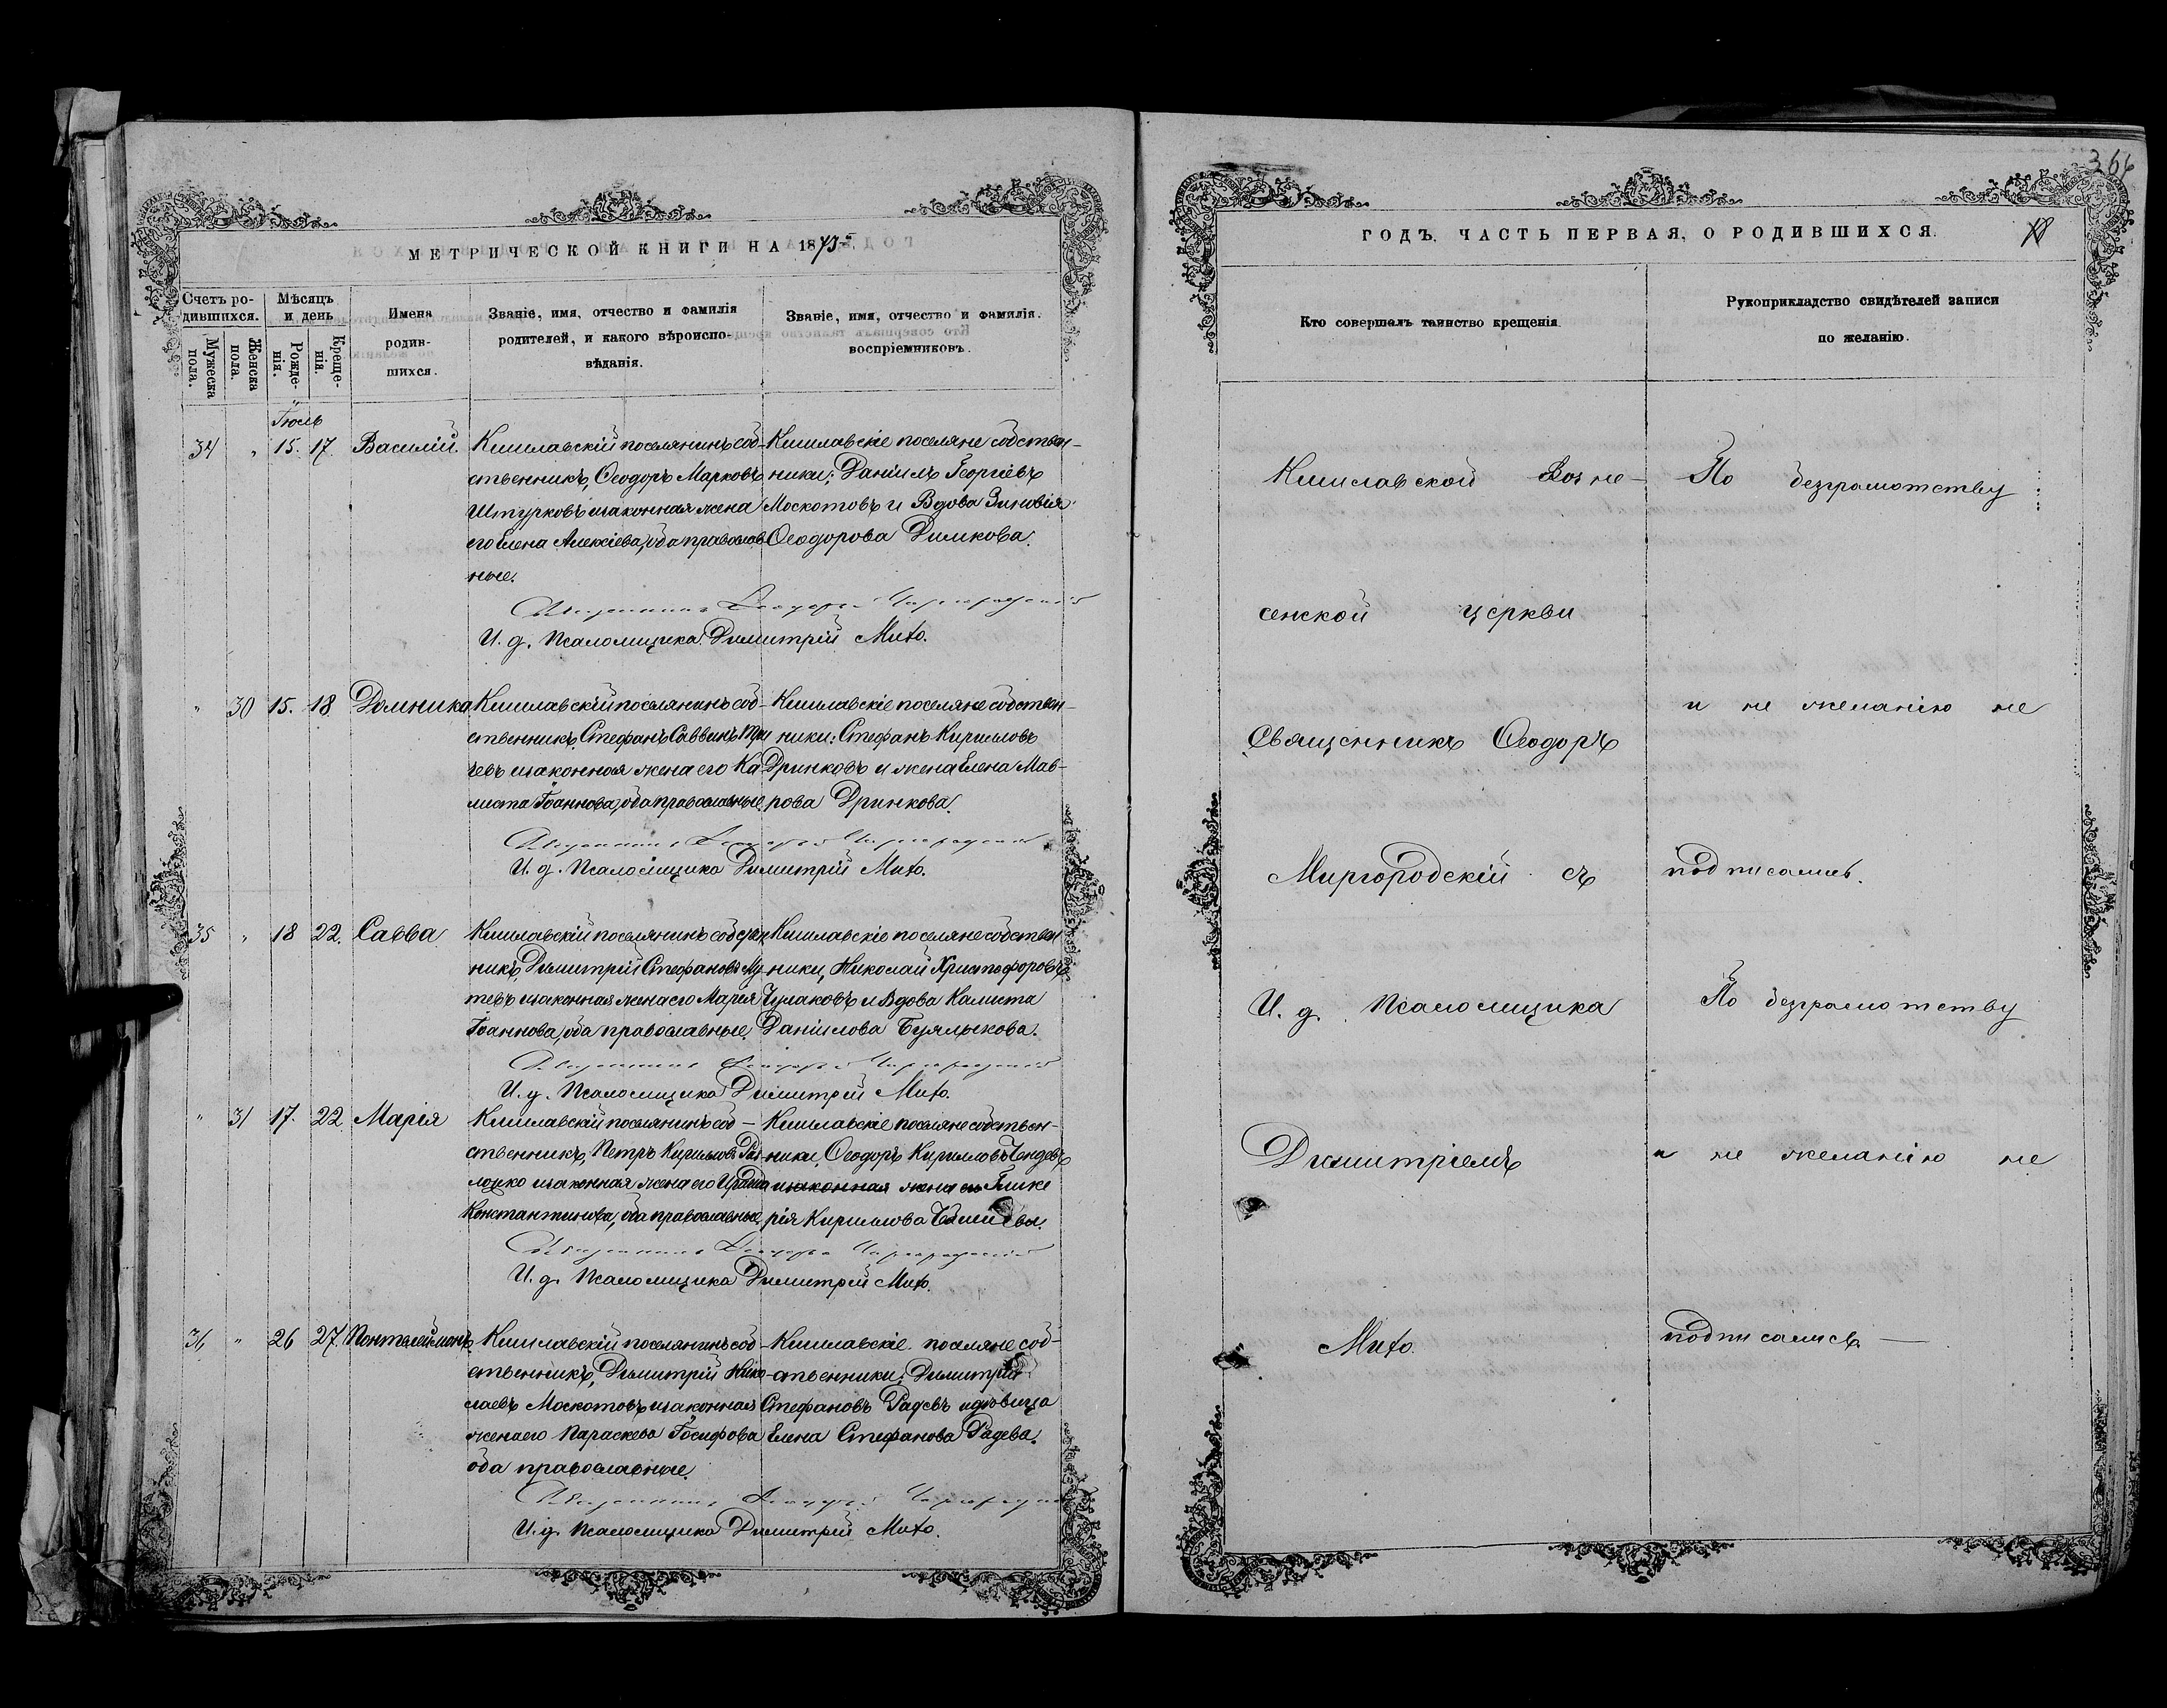 МЕТРИЧЕСКОЙ КНИГИ НА 1875
Счетъ ро-
дившихся.
Мужеска
пола.
Женска
пола.
Мѣсяцъ
и день
Рожде-
нія.
Креще-
нія.
Имена
родив-
шихся.
Званіе, имя, отчество и фамилія
родителей, и какого вѣроиспо-
вѣданія.
Званіе, имя, отчество и фамилія.
воспріемниковъ.
Іюль
34 " 15. 17. Василій.
Кишлавскій поселянинъ соб-
ственникъ, Ѳеодоръ Марковъ
Штурковъ и законная жена
его Елена Алексіева, оба православ
ные.
Кишлавскіе поселяне собствен-
ники: Даніилъ Георгіевъ
Москотовъ и Вдова Зиновія
Ѳеодорова Димкова.
И. д. Псаломщика Димитрій Мито.
" 30 15. 18 Домника
Кишлавскій поселянинъ соб-
ственникъ, Стефанъ Саввинъ
чевъ и законная жена его Ка
листа Іоаннова, оба православные.
Кишлавскіе поселяне собствен-
ники: Стефанъ Кирилловъ
Дринковъ и жена Елена Мав-
рова Дринкова.
И. д. Псаломщика Димитрій Мито.
35 " 18 22. Савва
Кишлавскій поселянинъ собствен
никъ, Димитрій Стефановъ Му
тевъ и законная жена его Марія
Іоаннова, оба православные.
Кишлавскіе поселяне собствен
ники, Николай Христофоровъ
Чулаковъ и Вдова Калиста
Даніилова Буялыкова.
И. д. Псаломщика Димитрій Мито.
" 31 17. 22. Марія
Кишлавскій поселянинъ соб-
ственникъ, Петръ Кирилловъ
и законная жена его
Константинова, оба православные.
Кишлавскіе поселяне собствен-
ники, Ѳеодоръ Кирилловъ Чендевъ
и законная жена его Глике
рія Кириллова
И. д. Псаломщика Димитрій Мито.
36 " 26 27. Понтелеймонъ.
Кишлавскій поселянинъ соб-
ственникъ, Димитрій Нико
лаевъ Москотовъ и законная
жена его Параскева Іосифова
оба православные.
Кишлавскіе поселяне соб-
ственники: Димитрій
Стефановъ Радевъ и двовица
Елена Стефанова Радева.
И. д. Псаломщика Димитрій Мито.
366
18
ГОДЪ. ЧАСТЬ ПЕРВАЯ, О РОДИВШИХСЯ.
Кто совершалъ таинство крещенія.
Рукоприкладство свидѣтелей записи
по желанію.
Кишлавской Возне-
сенской церкви
Священникъ Ѳеодоръ
Миргородскій съ
И. д. Псаломщика
Димитріемъ
Мито.
По безграмотству
и не желанію не
подписались.
По безграмотству
и не желанію не
подписались —